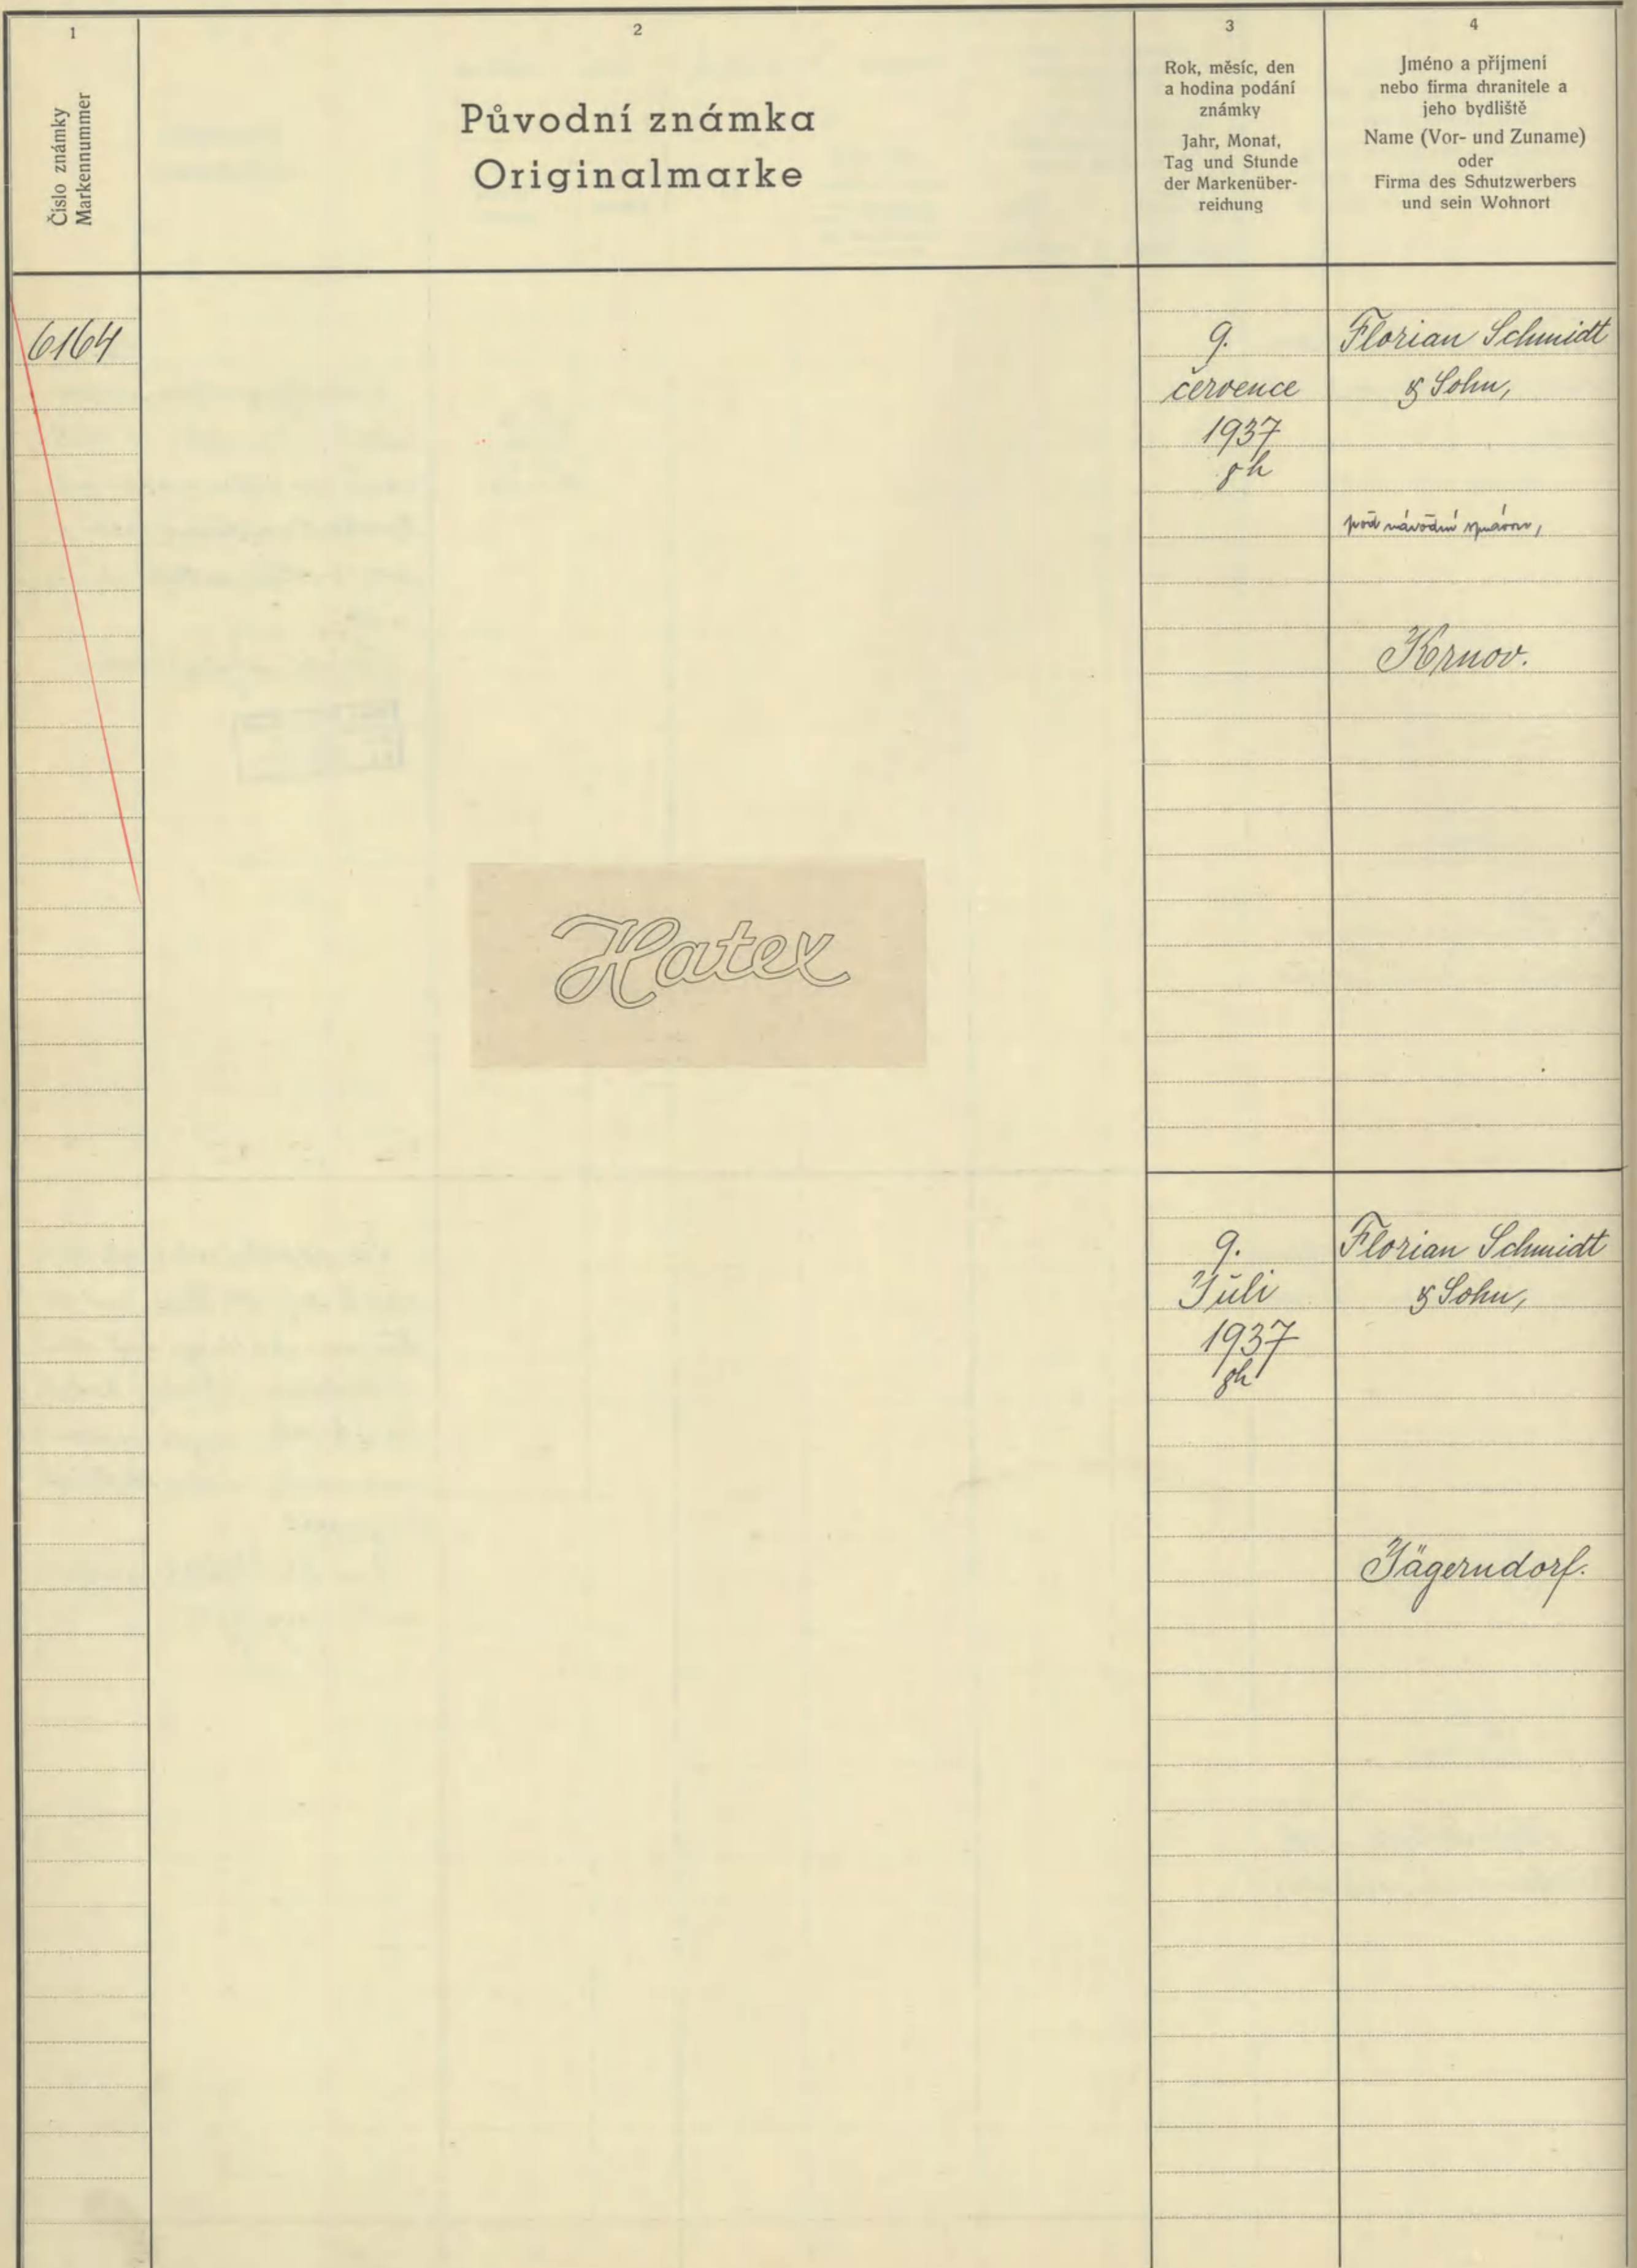 1
Číslo známky
Markennummer
2
Původní známka
Originalmarke
3
Rok, měsíc, den
a hodina podání
známky
Jahr, Monat,
Tag und Stunde
der Markenüber-
reichung
4
Jméno a příjmení
nebo firma chranitele a
jeho bydliště
Name (Vor- und Zuname)
oder
Firma des Schutzwerbers
und sein Wohnort
6164
9.
července
1937
8h
Florian Schmidt
& Sohn,
pod národní správou,
Krnov.
Hatex
9.
Juli
1937
8h
Florian Schmidt
& Sohn,
Jägerndorf.